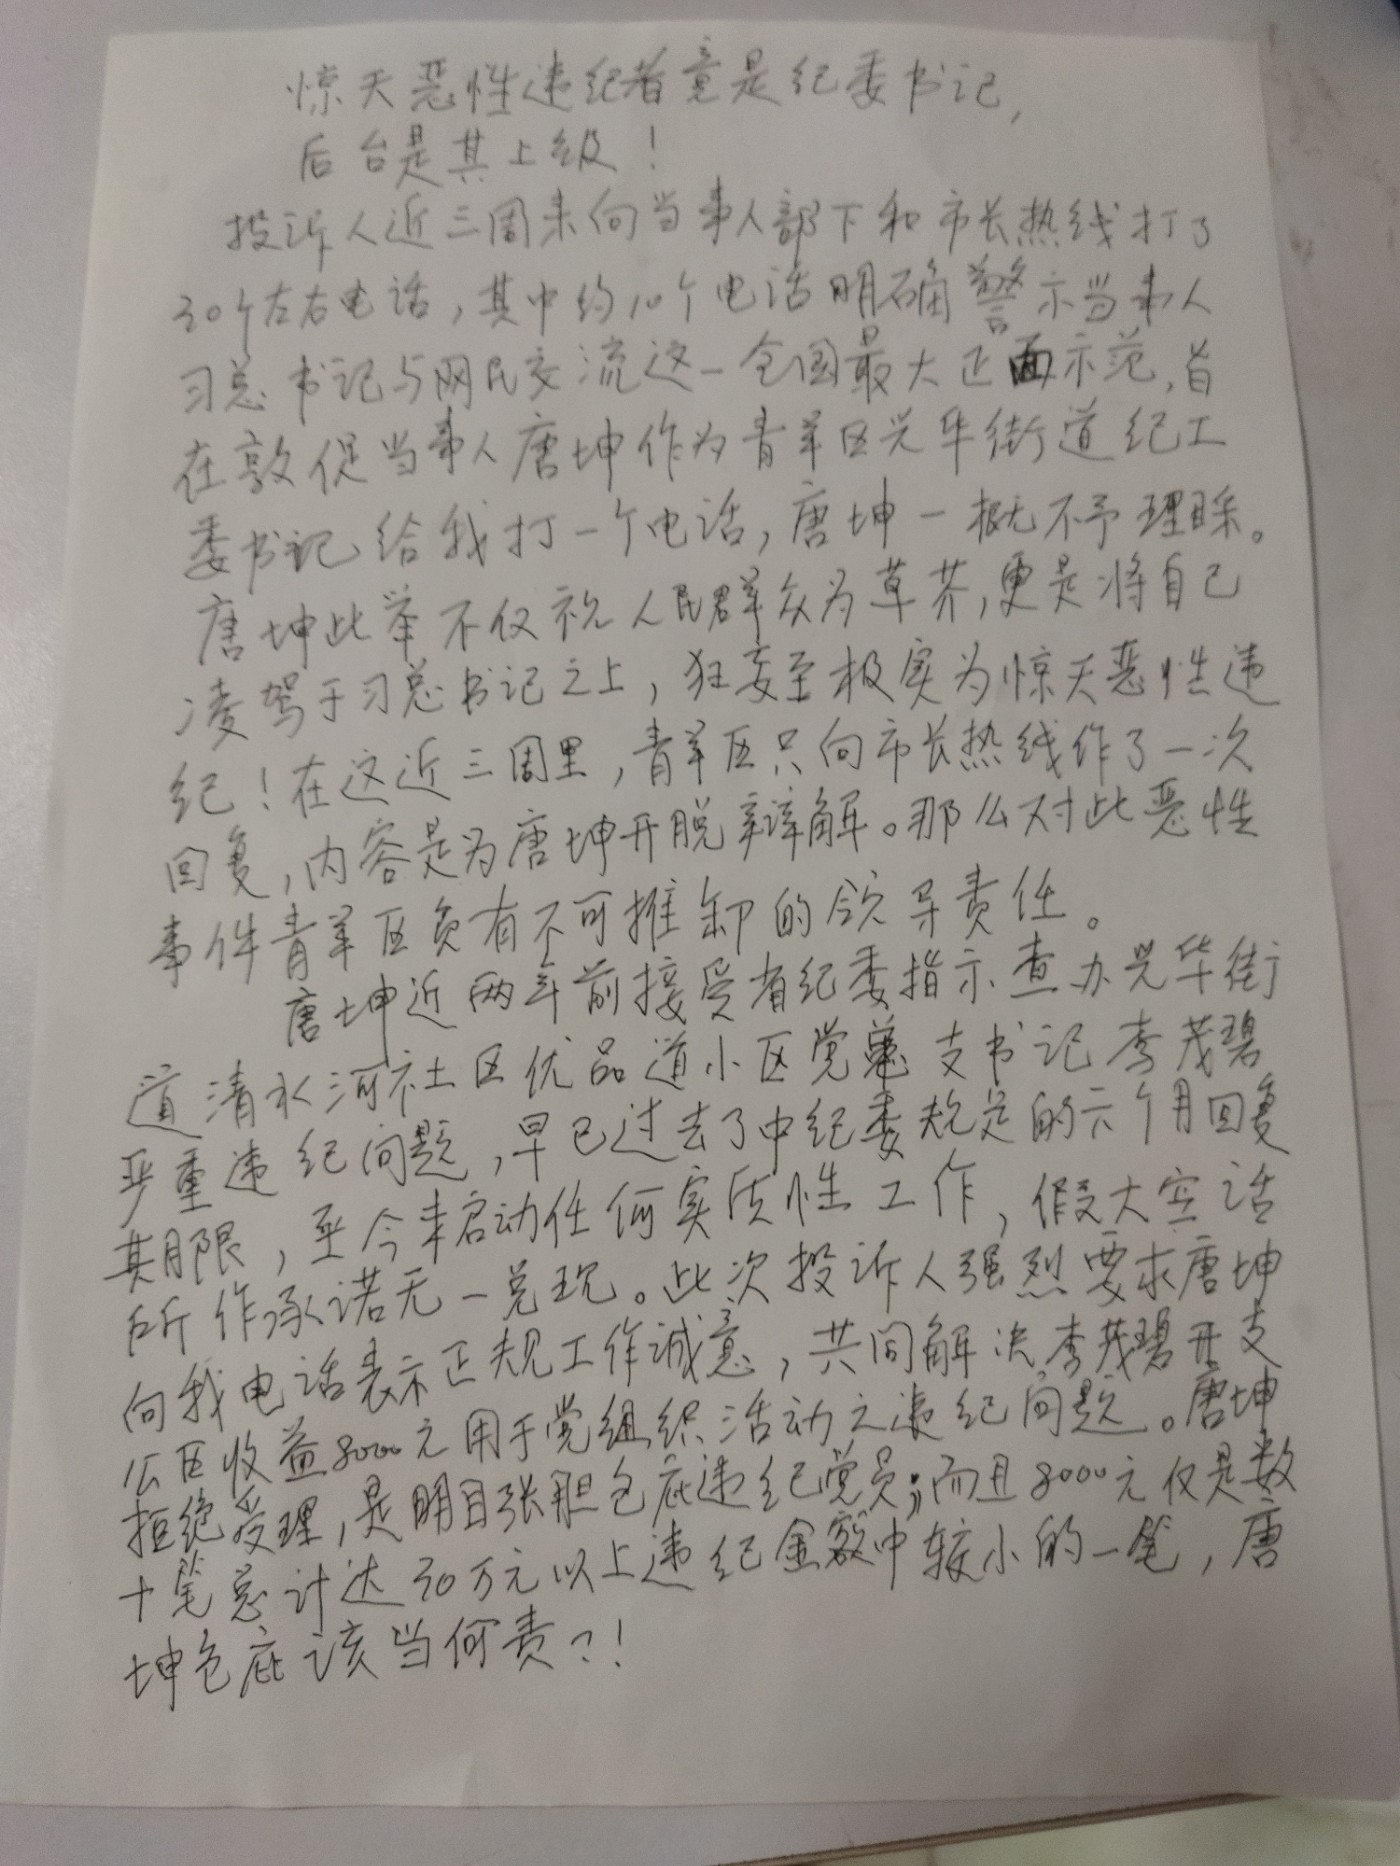 惊天恶性违纪者竟是纪委书记,
后台是其上级!
投诉人近三周来向当事人部下和市长热线打了
30个左右电话,其中约10个电话明确警示当事人
习总书记与网民交流这一全国最大正面示范,旨
在敦促当事人唐坤作为青羊区光华街道纪工
委书记给我打一个电话,唐坤一概不予理睬。
唐坤此举不仅视人民群众为草芥,更是将自己
凌驾于习总书记之上,狂妄至极实为惊天恶性违
纪!在这近三周里,青羊区只向市长热线作了一次
回复,内容是为唐坤开脱辩解。那么对此恶性
事件青羊区负有不可推卸的领导责任。
唐坤近两年前接受省纪委指示查办光华街
道清水河社区优品道小区党支书记李茂碧
严重违纪问题,早已过去了中纪委规定的六个月回复
期限,至今未启动任何实质性工作,假大空话
所作承诺无一兑现。此次投诉人强烈要求唐坤
向我电话表示正规工作诚意,共同解决李茂碧开支
公区收益8000元用于党组织活动之违纪问题。唐坤
拒绝受理,是明目张胆包庇违纪党员;而且8000元仅是数
十笔总计达30万元以上违纪金额中较小的一笔,唐
坤包庇该当何责?!